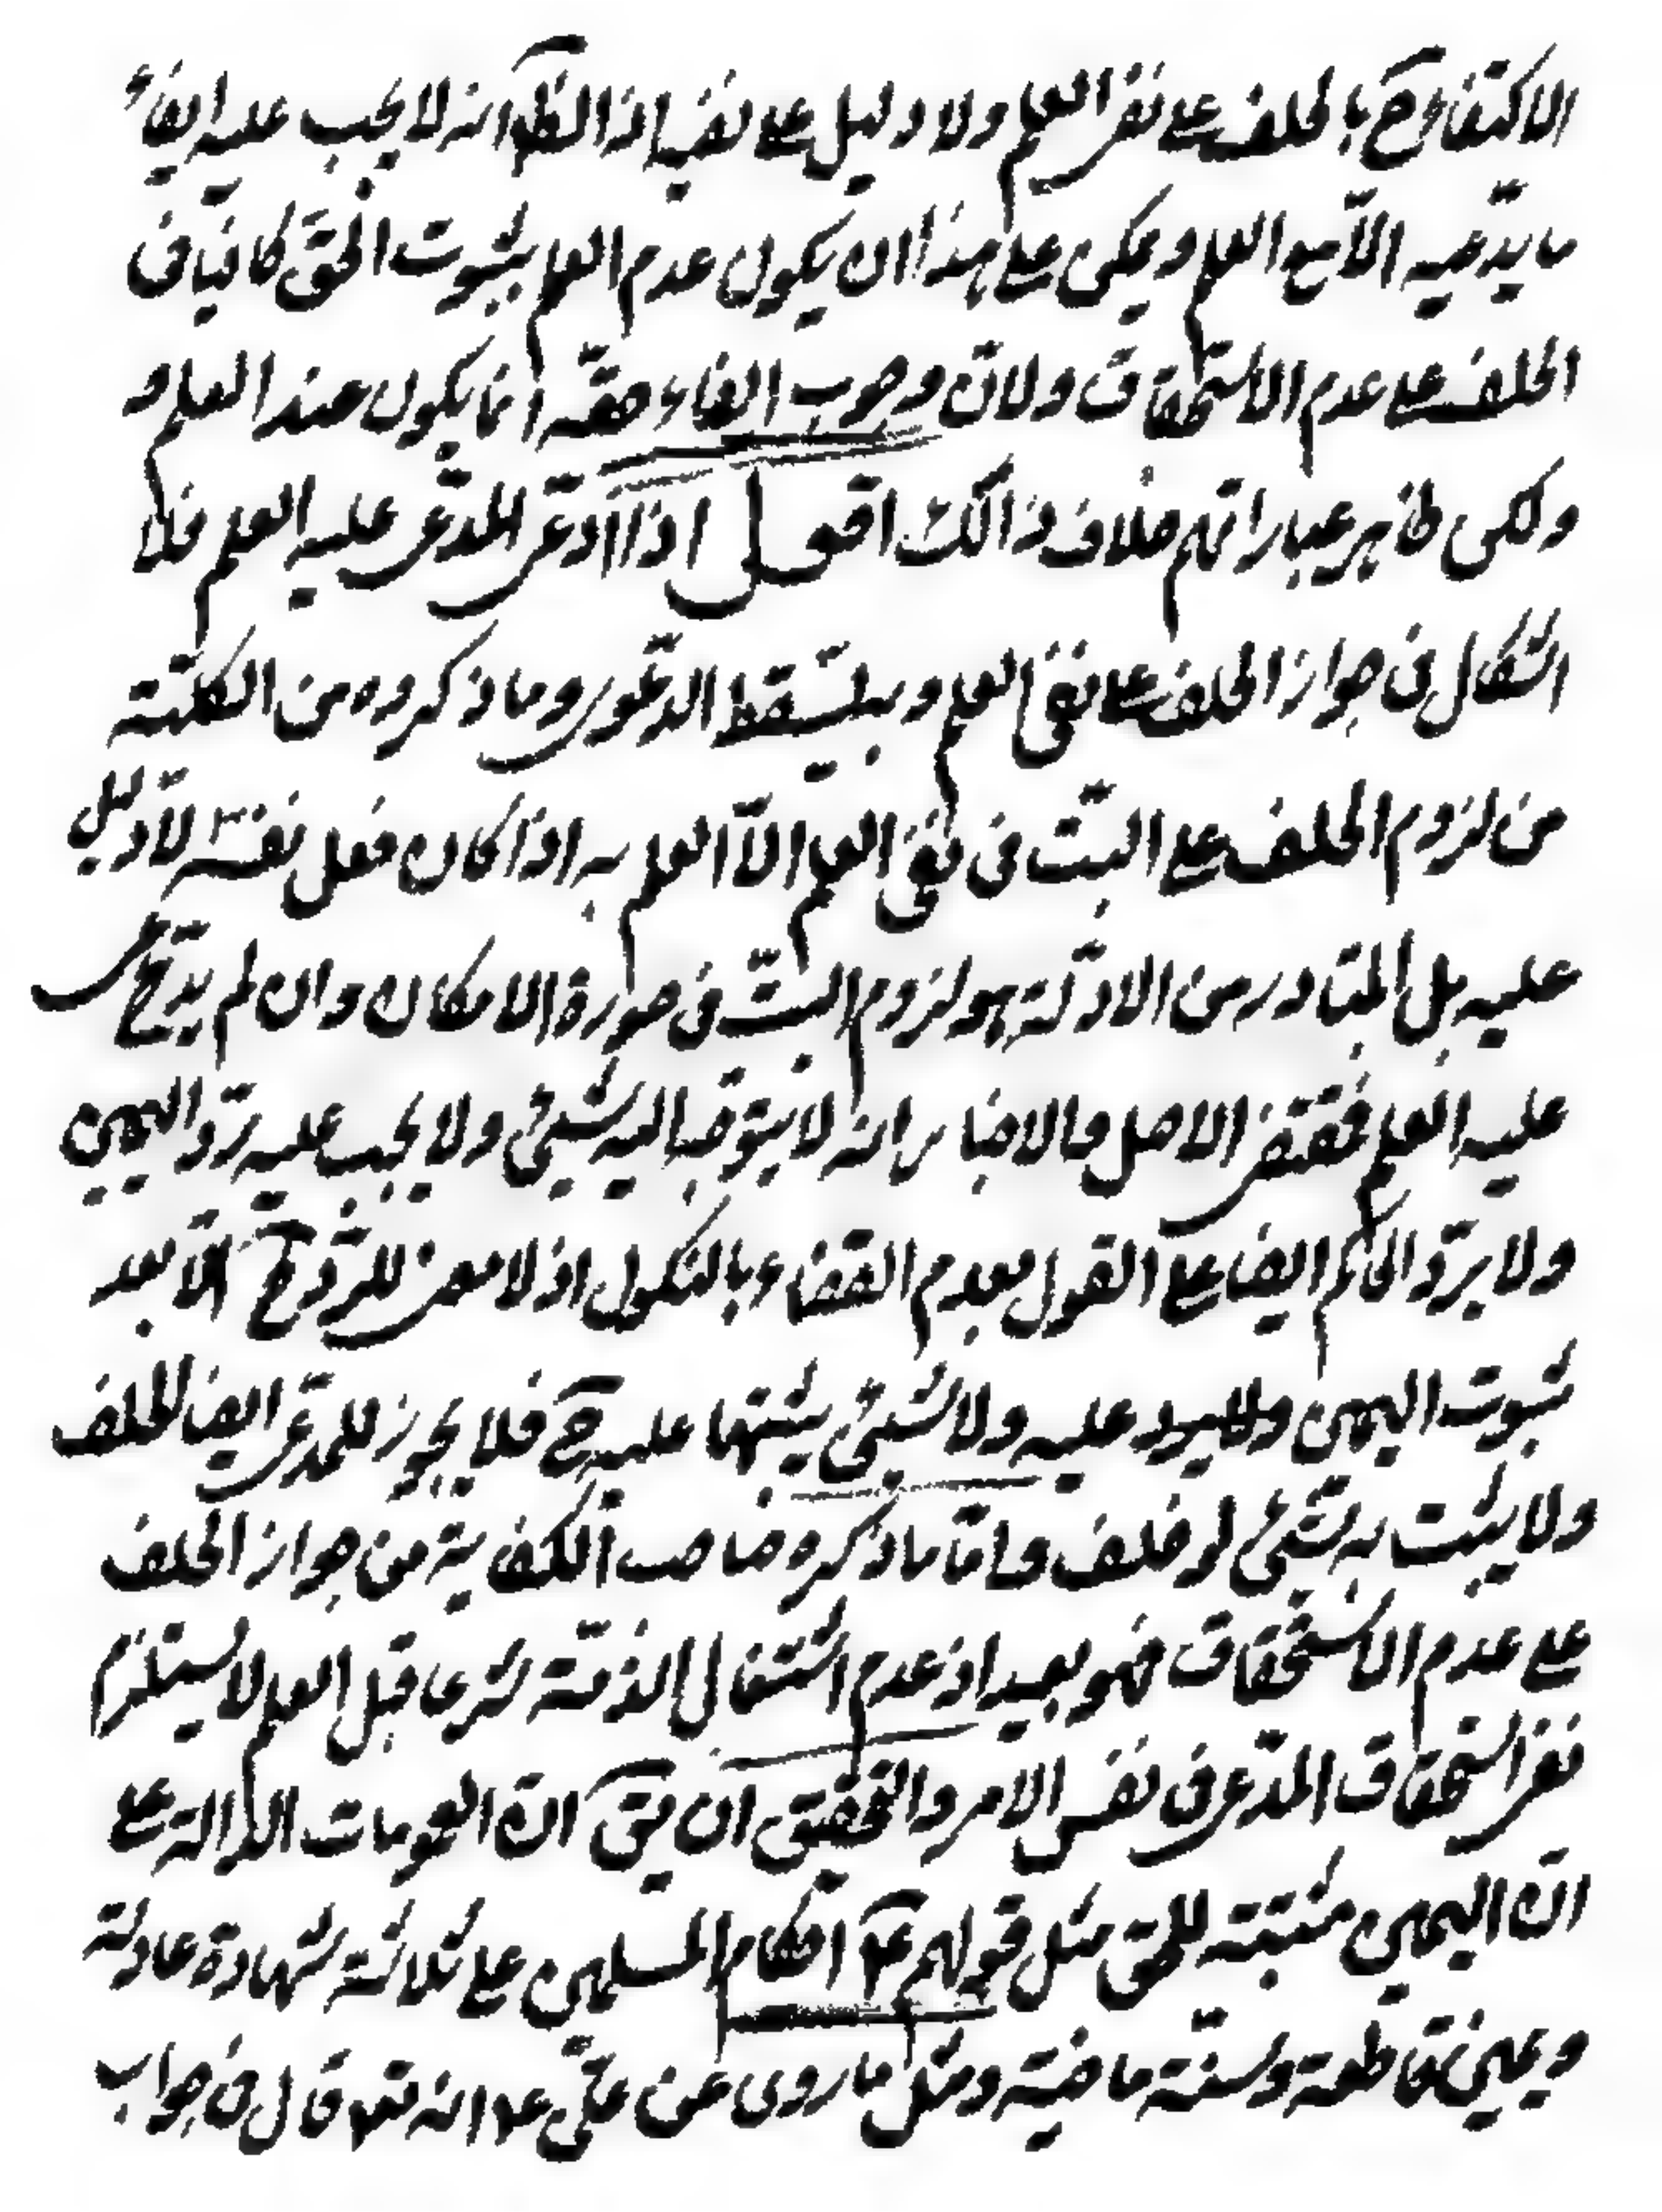 الاكتفاء ح بالحلف على نفى العلم ولا دليل على نفيه اذ الظ انه لا يجب عليه ايفاء
ما يدّعيه الّا مع العلم ويمكن على هذا ان يكون عدم العلم بثبوت الحقّ كافيا فى
الحلف على عدم الاستحقاق ولانّ وجوب ايفاء حقّه انما يكون عند العلم و
ولكن ظاهر عباراتهم خلاف ذالك اقول اذا ادّعى المدّعى عليه العلم فلا
اشكال فى جواز الحلف على نفى العلم وبه يسقط الدعوى وما ذكروه من الكلّيّة
من لزوم الحلف على البتّ فى نفى العلم الّا العلم به اذا كان فعل نفسه لا دليل
عليه بل المتبادر من الادلّة هو لزوم البتّ فى صورة الامكان وان لم يدّع
عليه العلم فمقتضى الاصل والاخبار انه لا يتوجّه اليه شيئ ولا يجب عليه ردّ اليمين
ولا يردّ الحاكم ايضا على القول بعدم القضاء بالنكول اذ لا معنى للردّ ح الّا بعد
ثبوت اليمين عليه ولا شيئ يثبتها عليه ح فلا يجوز للمدّعى ايضا الحلف
ولا يثبت به شيئ لو حلف وامّا ما ذكره صاحب الكفاية من جواز الحلف
على عدم الاستحقاق فهو بعيد اذ عدم اشتغال الذمّة شرعا قبل العلم لا يستلزم
نفى استحقاق المدّعى فى نفس الامر والتحقيق ان يق انّ العمومات الدالة على
انّ اليمين مثبتة للحق مثل قولهم ع احكام المسلمين على ثلاثة شهادة عادلة
ويمين قاطعة وسنّة ماضية ومثل ما روى عن علىّ ع انه قال فى جواب